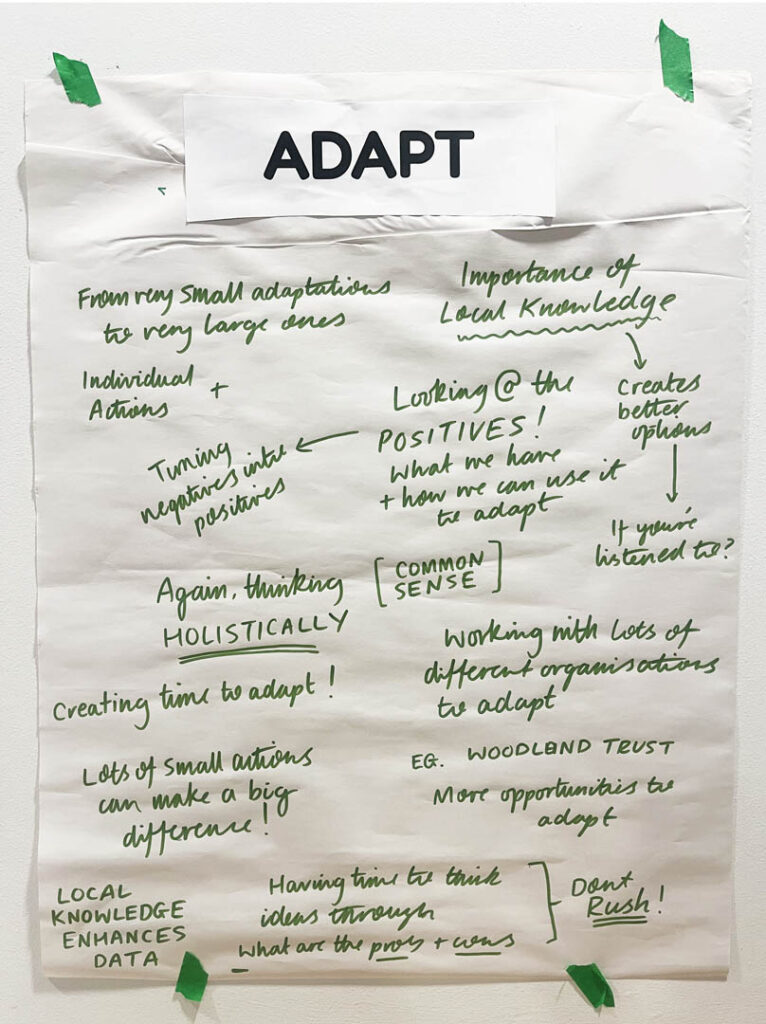 ADAPT
From very small adaptations
to very large ones
Importance of
Local Knowledge
Individual
Actions +
Creates
better
options
If you're
listened to?
Looking @ the
POSITIVES!
What we have
+ how we can use it
to adapt
Turning
negatives into
positives
Again, thinking
HOLISTICALLY
[COMMON
SENSE]
Creating time to adapt!
Working with lots of
different organisations
to adapt
EG. WOODLAND TRUST
More opportunities to
adapt
Lots of small actions
can make a big
difference!
LOCAL
KNOWLEDGE
ENHANCES
DATA
Having time to think
ideas through
What are the pros + cons
Dont
Rush!